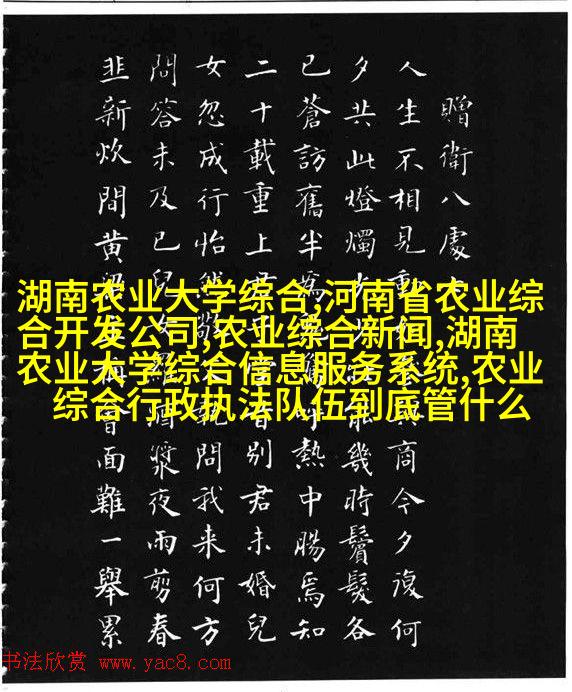 贈衛八處
人生不相見動商今夕復何
夕共此燈燭能幾時鬢髮各
已蒼訪舊半為呼熱中腸焉知
二十載重上君昔別君未婚兒
女忽成行怡然敬執問我来何方
問答未及已兒女羅酒漿夜雨剪春
韭新炊間黄粱稱會面難一舉累
湖南农业大学综合,河南省农业综
合开发公司,农业综合新闻,湖南
农业大学综合信息服务系统,农业
综合行政执法队伍到底管什么
书法欣赏 www.yac8.com